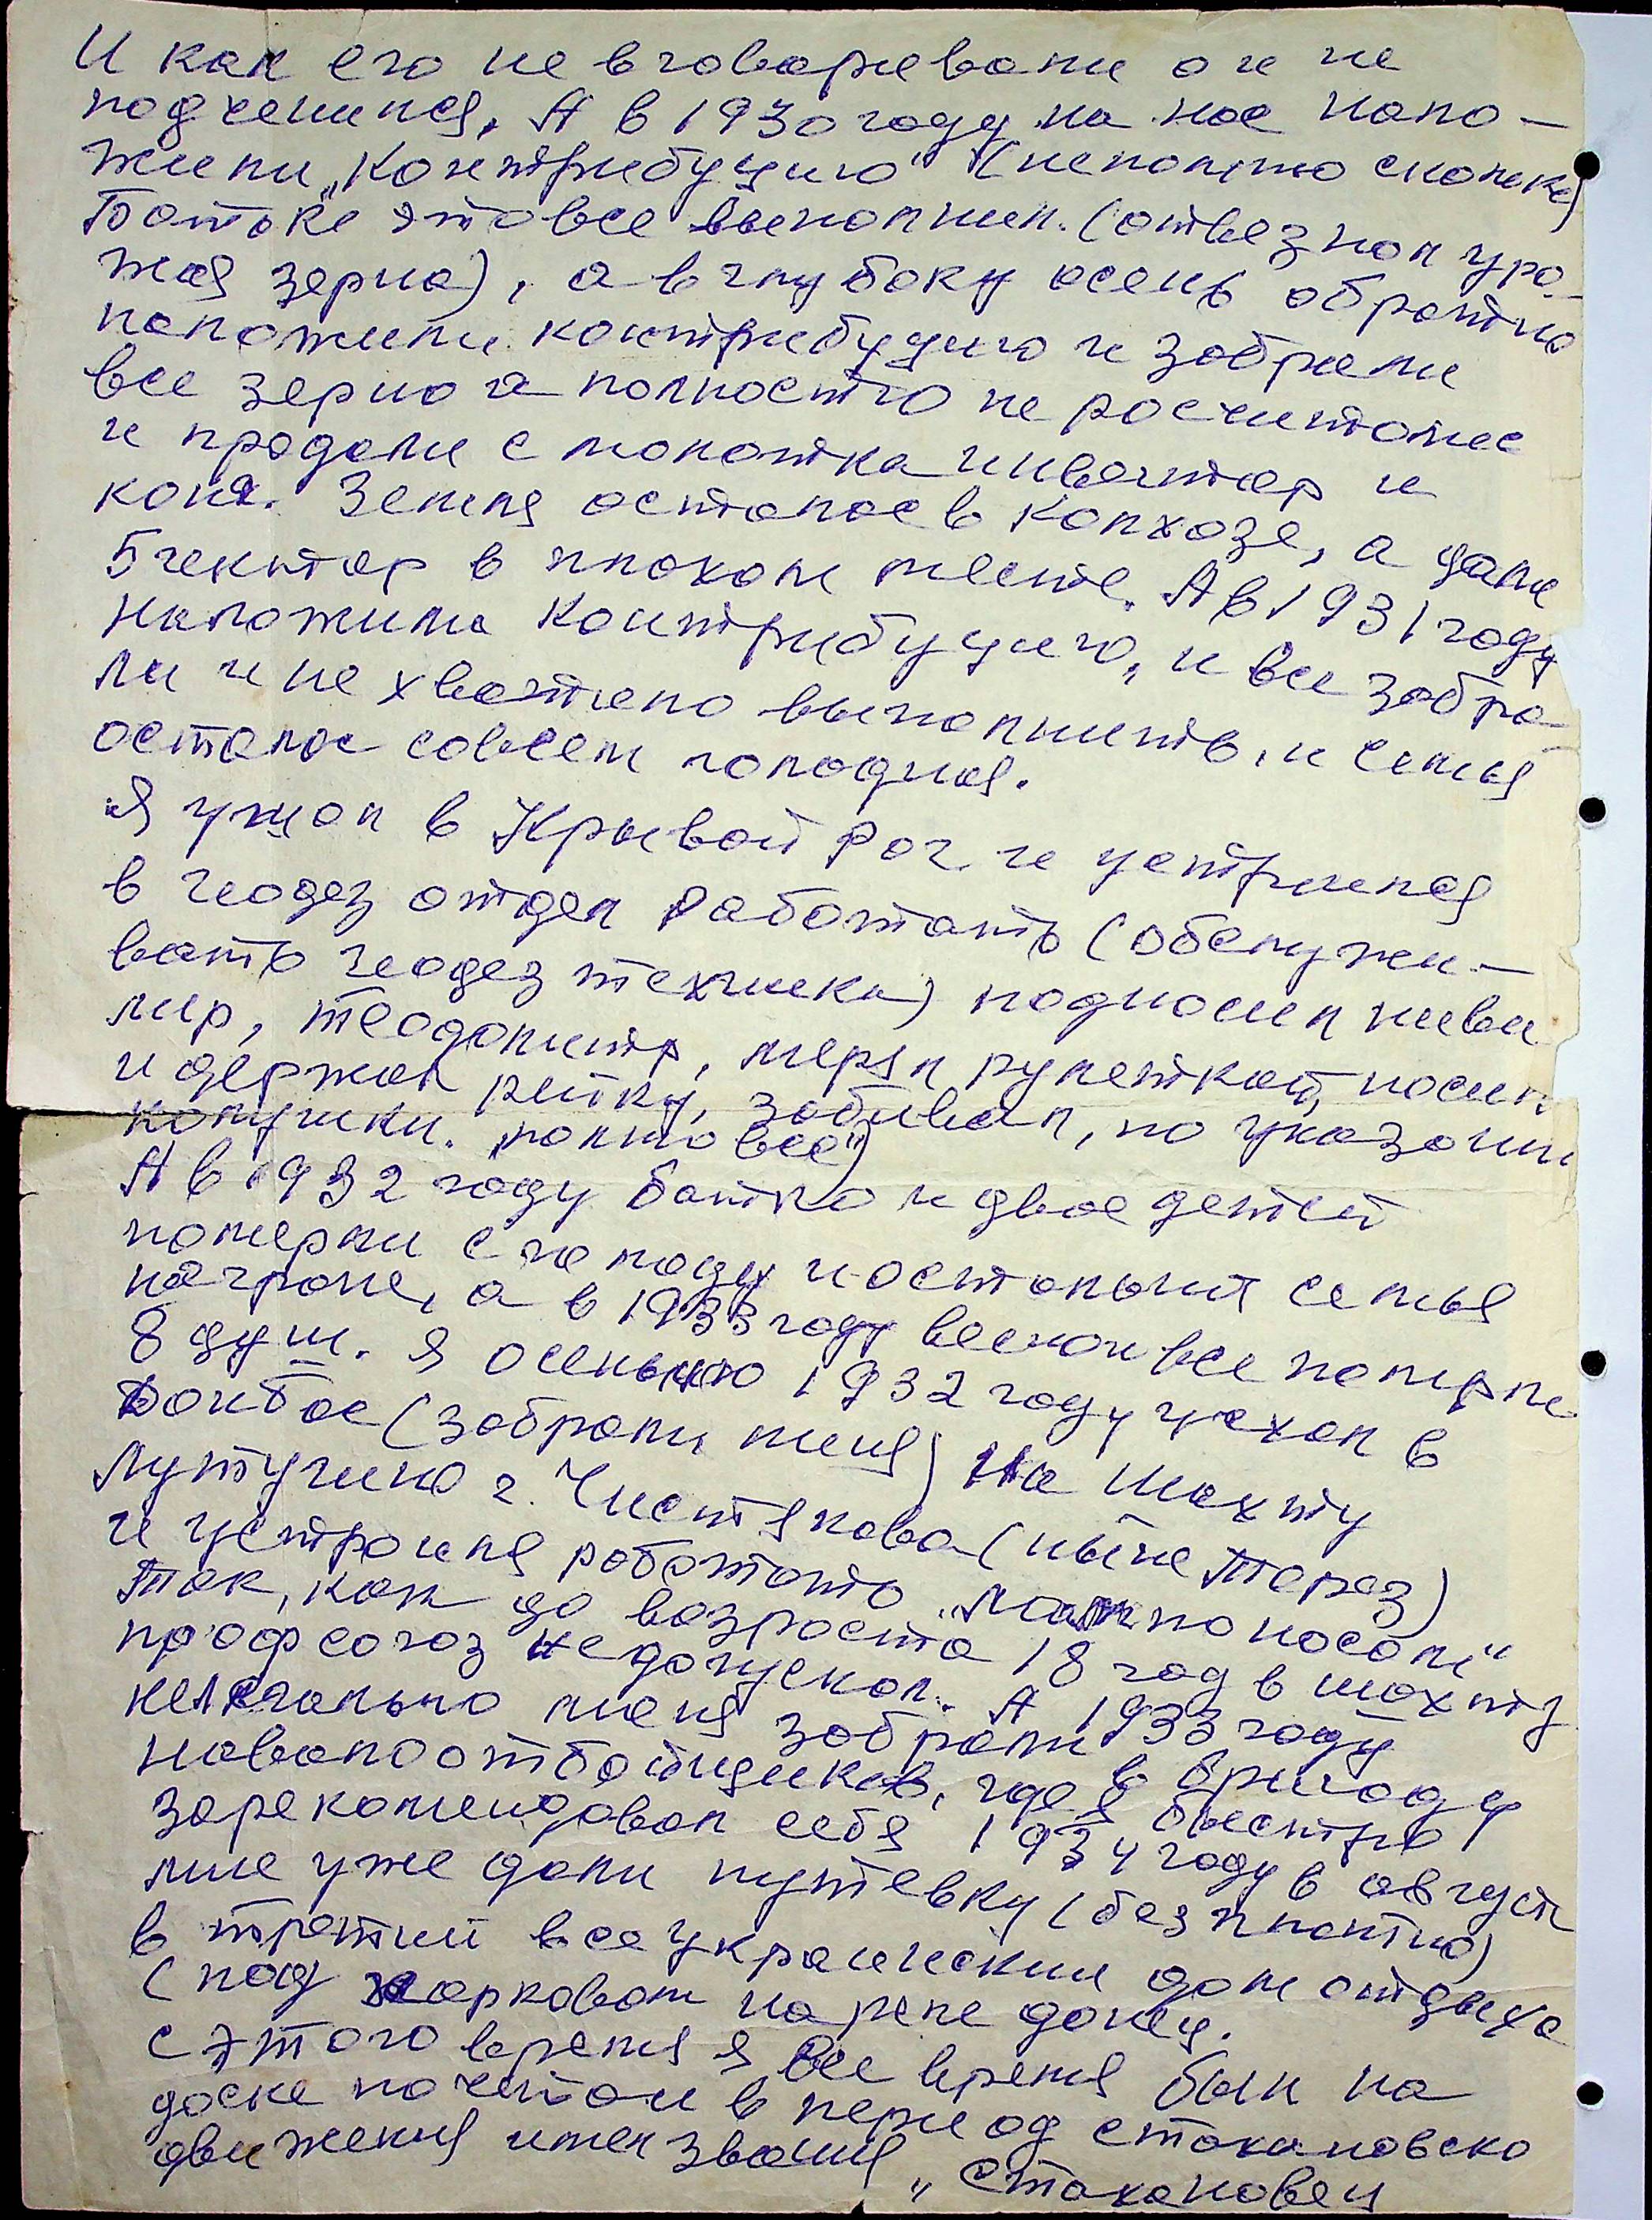 И как его не вговаривали он не
подченился. А в 1930 году на нас нало-
жили „контрибуцию" (непомню сколько)
Батоке это все выполнил. (отвез пол уро-
жая зерна), а в глубоку осень обратно
наложили контрибуцию и забрали
все зерно и полностю не росчиталис
и продали с молотка инвентар и
коня. Земля осталос в колхозе, а дали
5 гектар в плохом месте. А в 1931 году
наложили контрибуцию, и все забра-
ли и не хватило выполнить, и семья
осталос совсем голодная.
Я ушол в Крывой Рог и устрился
в геодез отдел работать (обслужи-
вать геодез техника) подносил ниви
лир, теодолитр, мерял рулеткой, носил
и держал рейку, забивал, по указани
колушки. „полно все")
А в 1932 году батко и двое детей
померли с голоду и остальная семья
на грани, а в 1933 году весной все померли
8 душ. Я осенью 1932 году уехал в
Донбас (забрали меня) на шахту
Лутугино г. Чистяково (ныне Торез)
и устроился работать „лампоносом"
так, как до возроста 18 год в шахту
профсоюз не допускал. А 1933 году
нелегально меня забрали в бригаду
навалоотбойщиков, где я быстро
зарекомендовал себя 1934 году в август
мне уже дали путевку (безплатно)
в третий всеукраинский дом отдыха
(под Харковом на реке донец.
с этого время я все время был на
доске почетай в период стокановско
движения имел звания „Стокановец